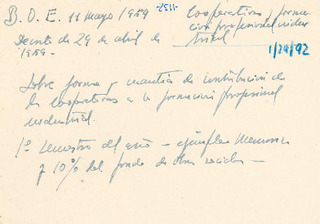 B.O.E. 11 mayo/1959
-2511-
Cooperativas, forma
ción profesional indus
trial
Decreto de 29 de abril de
1959.
1/29/92
Sobre forma y cuantía de contribución de
las cooperativas a la formación profesional
industrial.
1º semestre del año - ejemplar Memoria
y 10% del fondo de obras sociales -